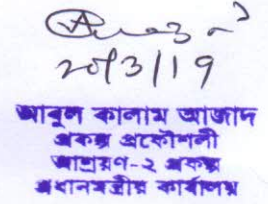 20/3/19
আবুল কালাম আজাদ
প্রকল্প প্রকৌশলী
আশ্রয়ণ-২ প্রকল্প
প্রধানমন্ত্রীর কার্যালয়